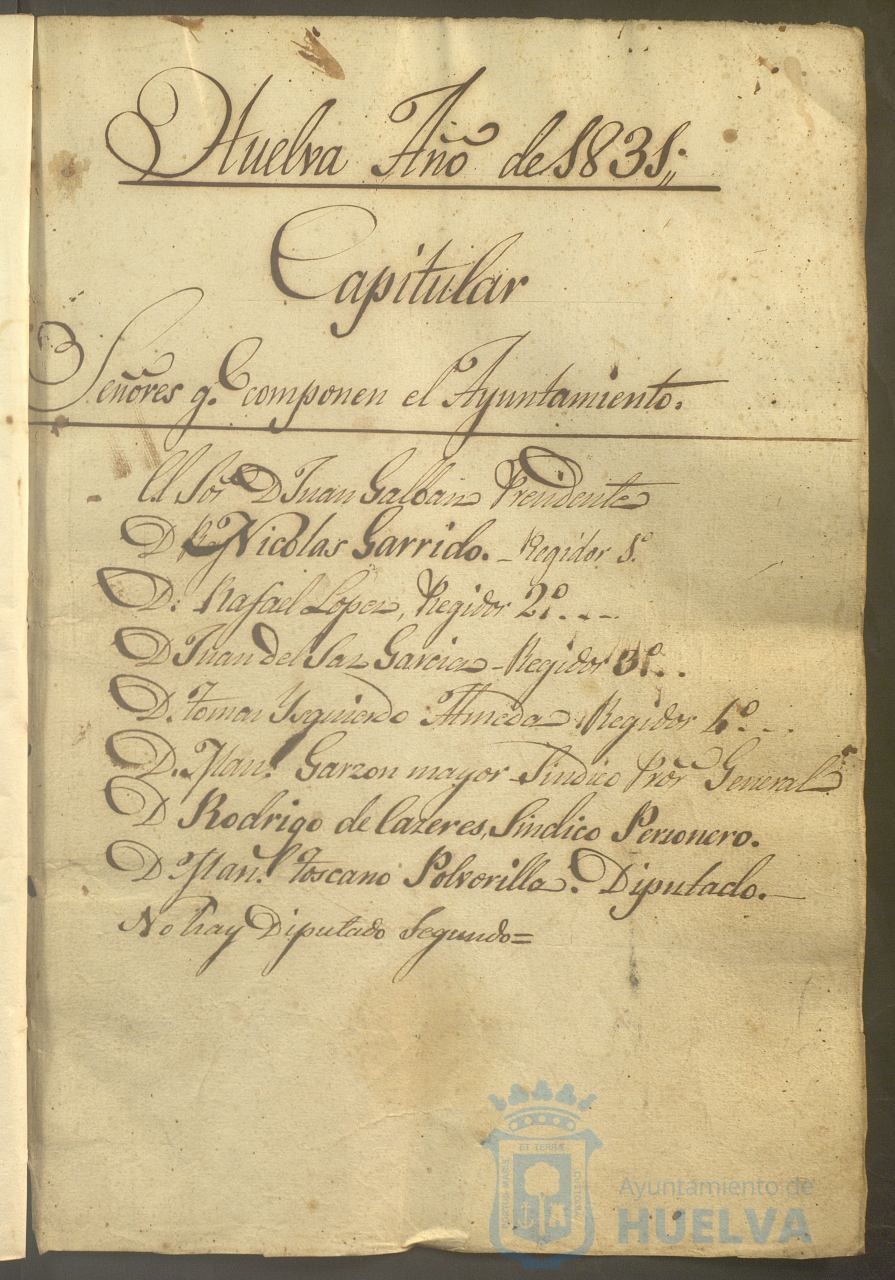 Huelva Año de 1831,,
Capitular
Señores q.e componen el Ayuntamiento.
El Sor D Juan Galban Presidente
D Nicolas Garrido. - Regidor 1.º
D. Rafael Lopez, Regidor 2º...
D Juan del Saz Garcia - Regidor 3º..
D. Tomas Ysquierdo Almeda Regidor 4º...
D. Garzon mayor Sindico Pror General
D Rodrigo de Cazeres, Sindico Personero.
D Toscano Polvorilla. Diputado.
No hay Diputado Segundo=
ET TERRÆ
Ayuntamiento de
HUELVA